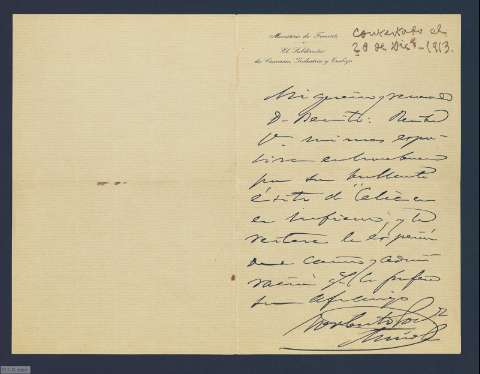 Ministerio de Fomento
El Subdirector
de Comercio, Industria y Trabajo
Contestado el
20 de Dicᵉ - 1913.
Mi querido y venerado
D. Benito: Reciba
Vᵈ mi mas expre
siva enhorabuena
por su brillante
éxito d' "Celia en
en los Infiernos", y la
de cariño y admi
ración q. le profesa
su afmo amigo
Norberto